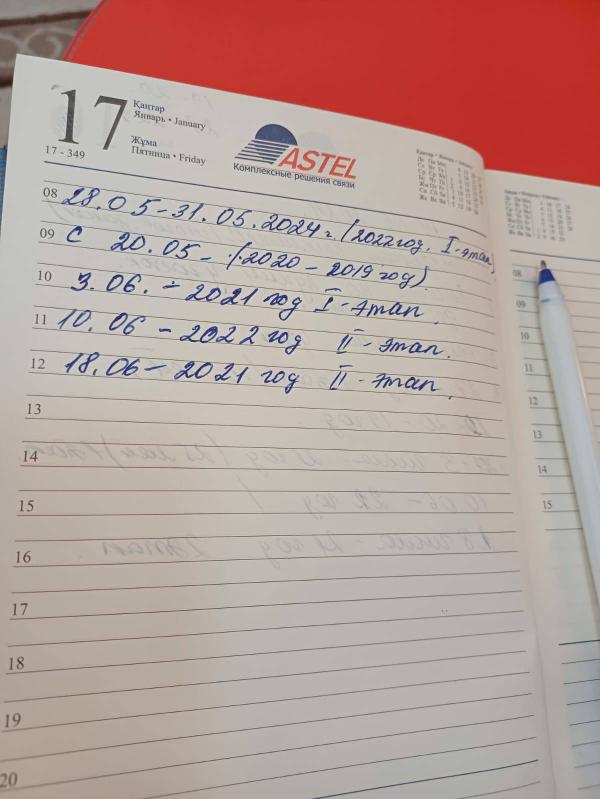 17
Қаңтар
Январь • January
Жұма
Пятница • Friday
17 - 349
ASTEL
Комплексные решения связи
08 28.05-31.05.2024 г. (2022 год, I-этап)
09 С 20.05 - (2020 - 2019 год).
10 3.06. - 2021 год I - этап.
11 10.06 - 2022 год II - этап.
12 18.06 - 2021 год II - этап.
13
14
15
16
17
18
19
20
08
09
10
11
12
13
14
15